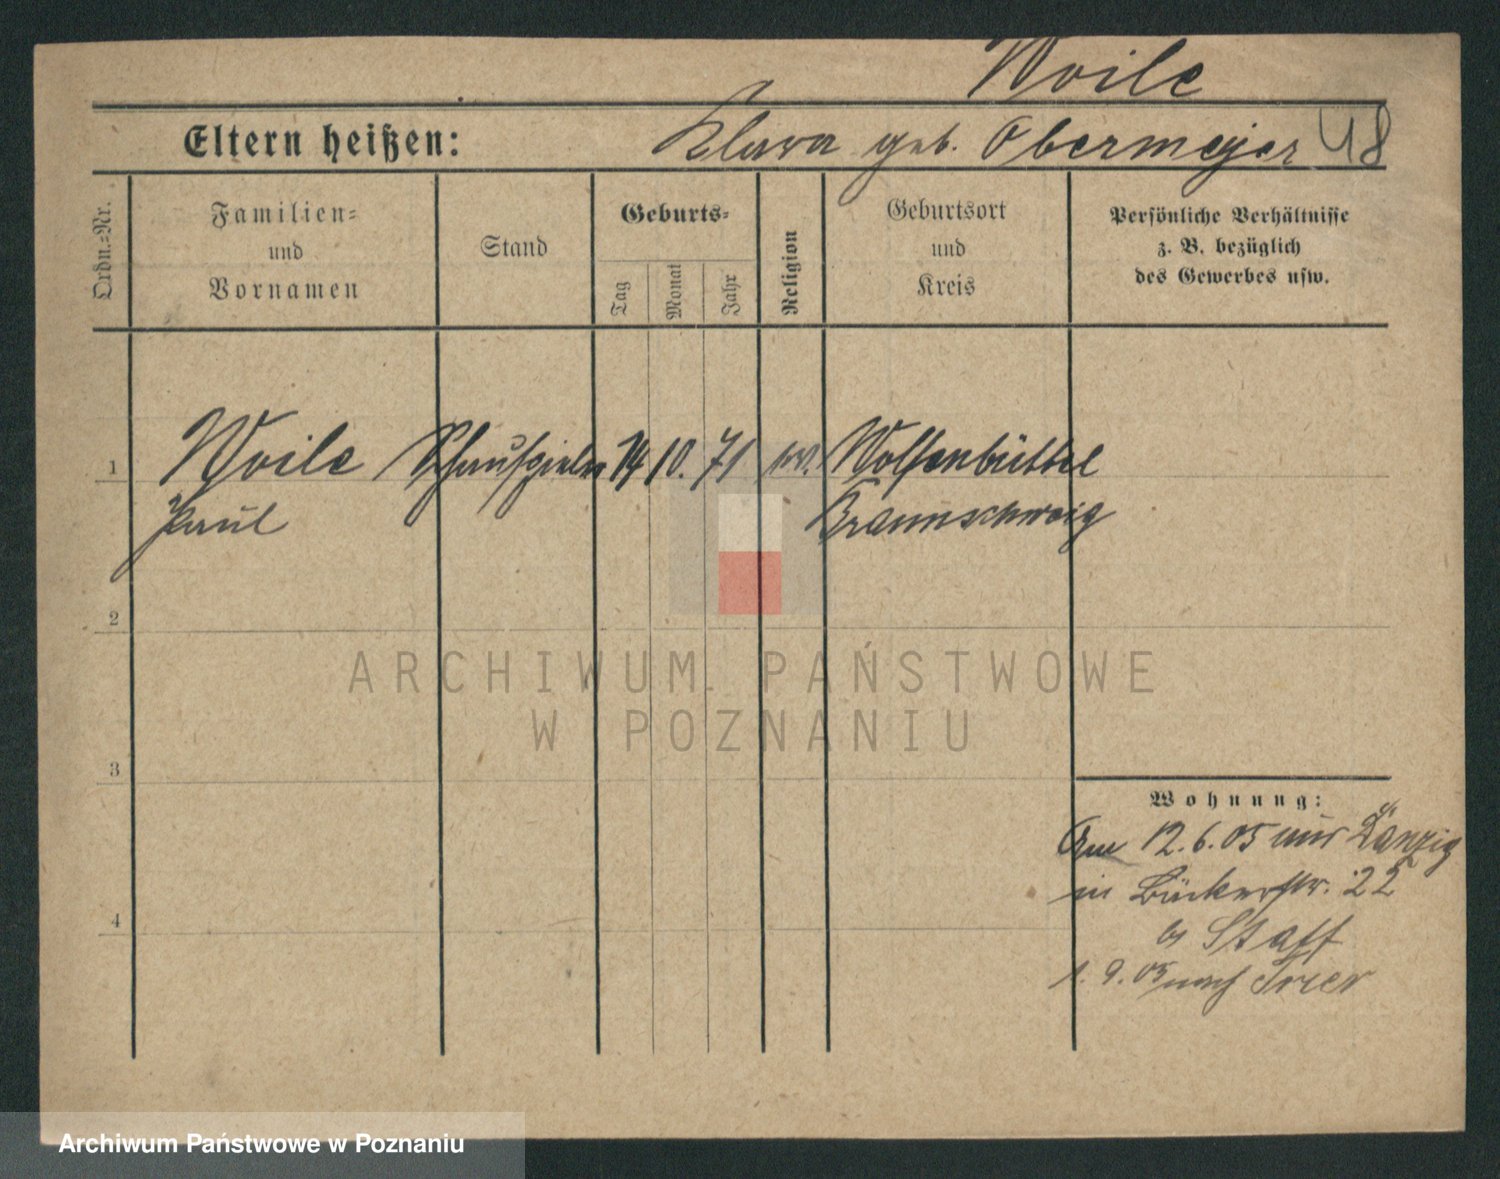 Woile
Eltern heißen: Klara geb. Obermeyer 48
Ordn.-Nr.
Familien-
und
Vornamen
Stand
Geburts-
Tag
Monat
Jahr
Religion
Geburtsort
und
Kreis
Persönliche Verhältnisse
z. B. bezüglich
des Gewerbes usw.
1 Woile Schauspieler 14 10. 71 ev. Wolfenbüttel
Paul Braunschweig
2
3
4
Wohnung:
Am 12.6.05 aus Danzig
in Bäckerstr. 22
b Staff
1.9.05 nach Trier
ARCHIWUM PAŃSTWOWE
W POZNANIU
Archiwum Państwowe w Poznaniu